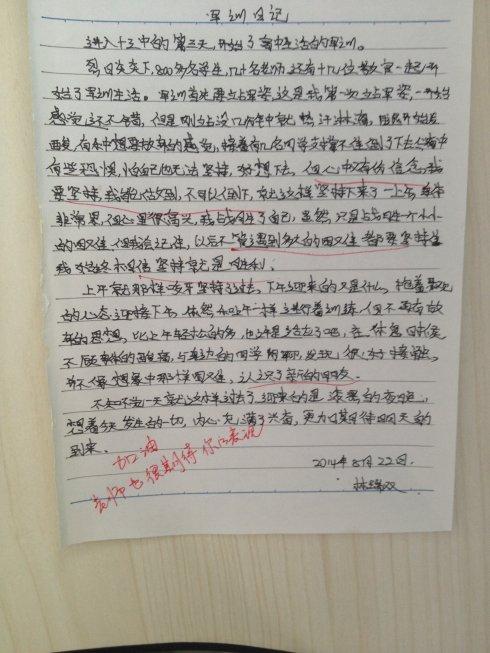 军训日记
进入十三中的第三天,开始了高中生活的军训。
烈日炎炎下,800多名学生,几十名老师还有十几位教官一起开
始了军训生活。军训首先要站军姿,这是我第一次站军姿,一开始
感觉还不错,但是刚站没几分钟就大汗淋漓,
心中想要放弃的感觉,接着有几名同学支撑不住倒了下去,心中
有些恐惧,怕自己也无法坚持,但心中又有个信念,我
要坚持,我能做到,不可以倒下,就这样坚持下来了一上午,
非常累,但心里很高兴,我战胜了自己,虽然,只是战胜一个小小
的困难,但我会记住,以后不管遇到多大的困难都要坚持住
我始终相信坚持就是胜利。
上午就那样咬牙坚持了过去,下午迎来的又是什么,抱着
的心态迎接下午,依然和上午一样进行着训练,但不再有放
弃的思想,比上午轻松的多,也许是适应了吧,在休息时候
不顾身体的疲惫,与身边的同学们聊,发现,很好接触,
并不像想象中那样困难,认识了新的朋友。
不知不觉一天就这样过去了,迎来的是漆黑的夜晚,
想着今天发生的一切,内心充满了兴奋,更为期待明天的
到来。
加油
老师也很期待你的表现
2014年8月22日.
林